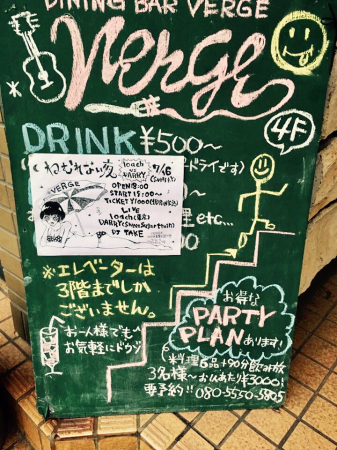 DINING BAR VERGE
Verge
DRINK ¥500〜
ドライです)
4F
ねむれない夜
loach
VS
DARRY
7/16
VERGE
OPEN 18:00
START 19:00〜
TICKET ¥1000(1DRINK込)
LIVE
loach(東京)
DJ TAKE
理etc...
※エレベーターは
3階までしか
ございません。
お一人様でも
お気軽にドウゾ
お得な
PARTY
PLAN あります!
※料理6品+90分飲み放
3名様〜お1人あたり¥3000!
要予約!! 080-5550-5805